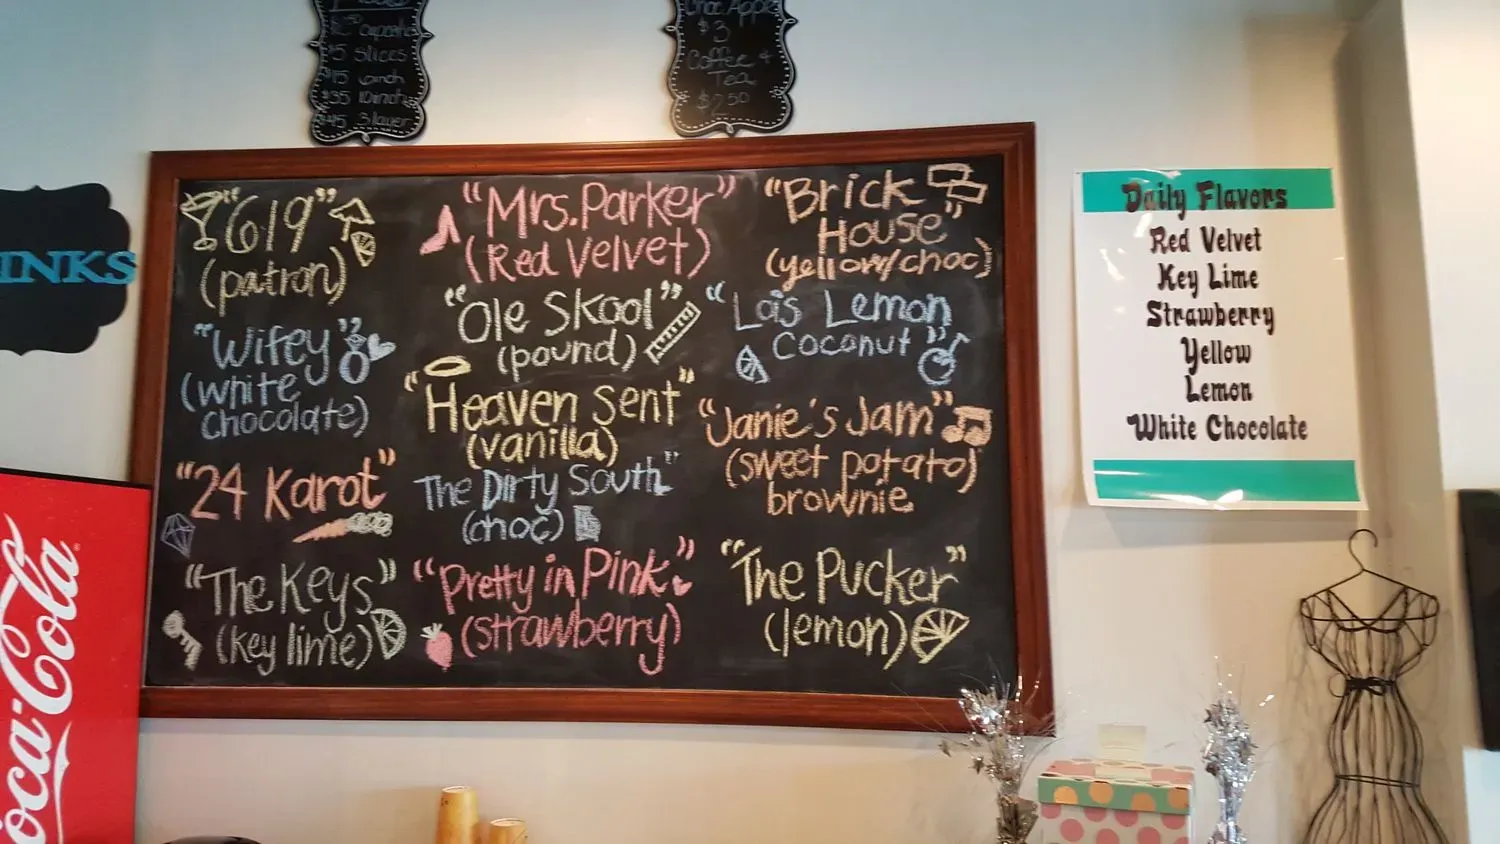 cupcake
$5 slices
$15 6inch
$35 10inch
$45 3 layer
Choc Apple
$3
Coffee +
Tea
$2.50
INKS
"619"
(patron)
"Wifey"
(white
chocolate)
"24 Karot"
"The Keys"
(key lime)
"Mrs. Parker"
(Red Velvet)
"Ole Skool"
(pound)
"Heaven Sent"
(vanilla)
The Dirty South"
(choc)
"Pretty in Pink"
(strawberry)
"Brick
House"
(yellow/choc)
"Lois Lemon
Coconut"
"Janie's Jam"
(sweet potato)
brownie
"The Pucker"
(lemon)
Daily Flavors
Red Velvet
Key Lime
Strawberry
Yellow
Lemon
White Chocolate
Coca-Cola